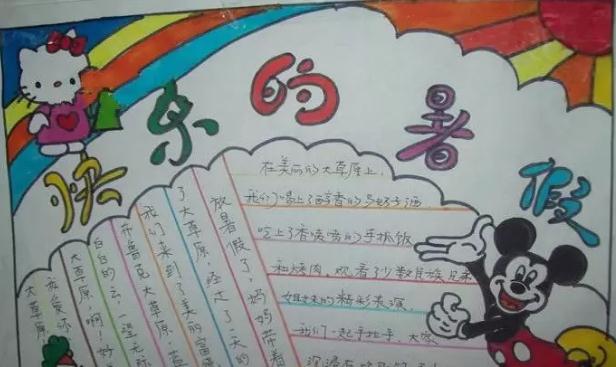 快乐的暑假
在美丽的大草原上,
我们喝上了醇香的马奶子酒
吃上了香喷喷的手抓饭
和烤肉,观看了少数民族兄弟
姐妹的精彩表演,
我们一起手拉手,大家
沉浸在
放暑假了,妈妈带着
了大草原,经过了一天的
我们来到了美丽富
布鲁克大草原,蓝
白白的云,一望无际
大草原,啊!好
我爱你
大草原